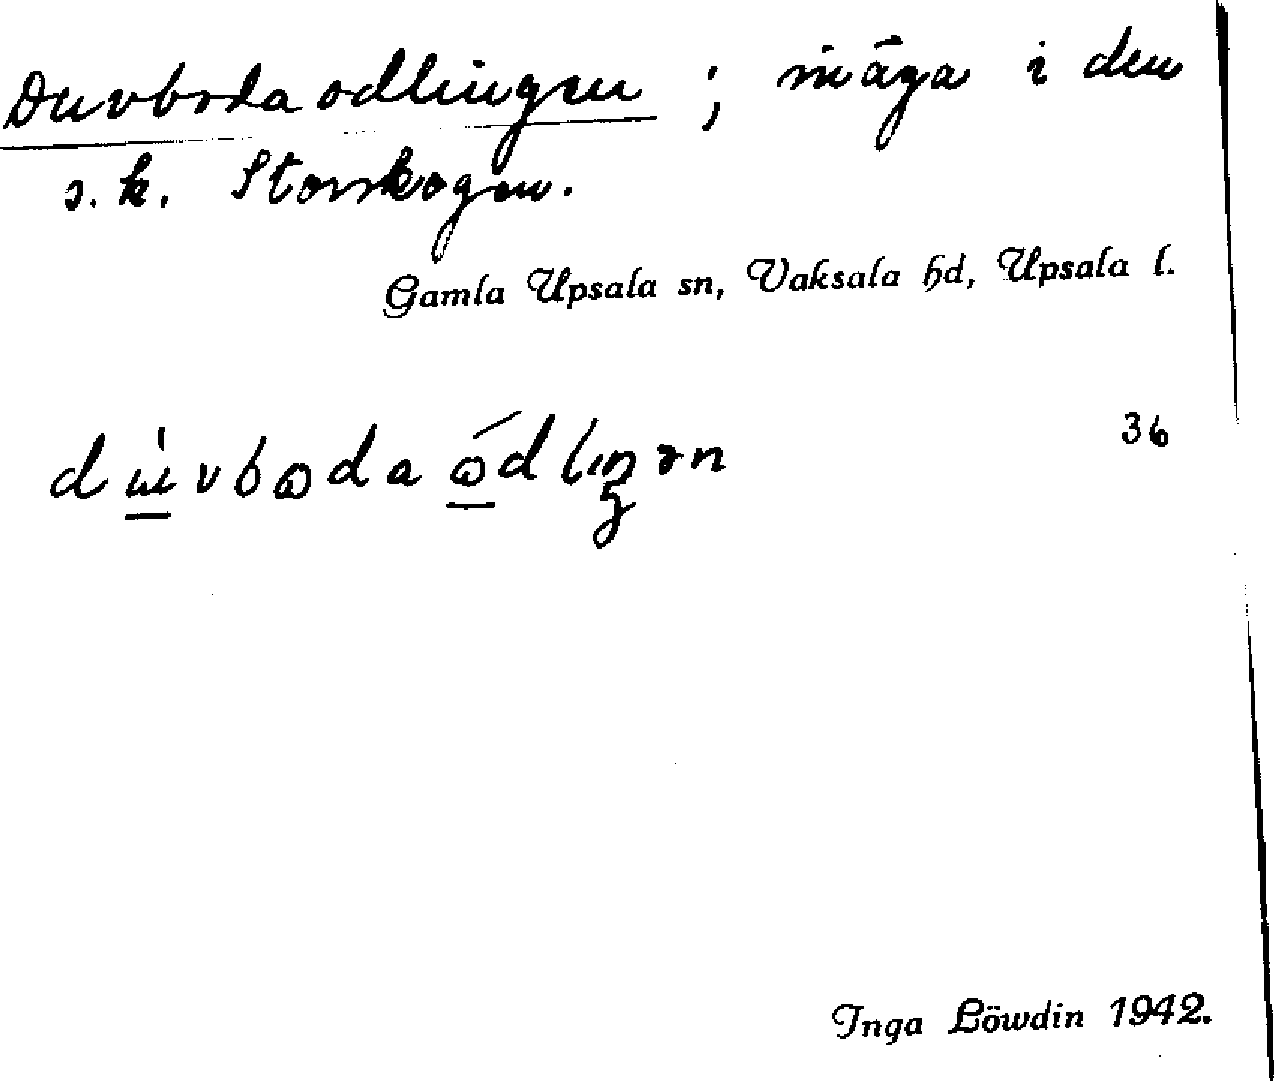 Duvbodaodlingen ; inäga i den
s.k. Storskogen.
Gamla Upsala sn, Vaksala hd, Upsala l.
36
Inga Löwdin 1942.